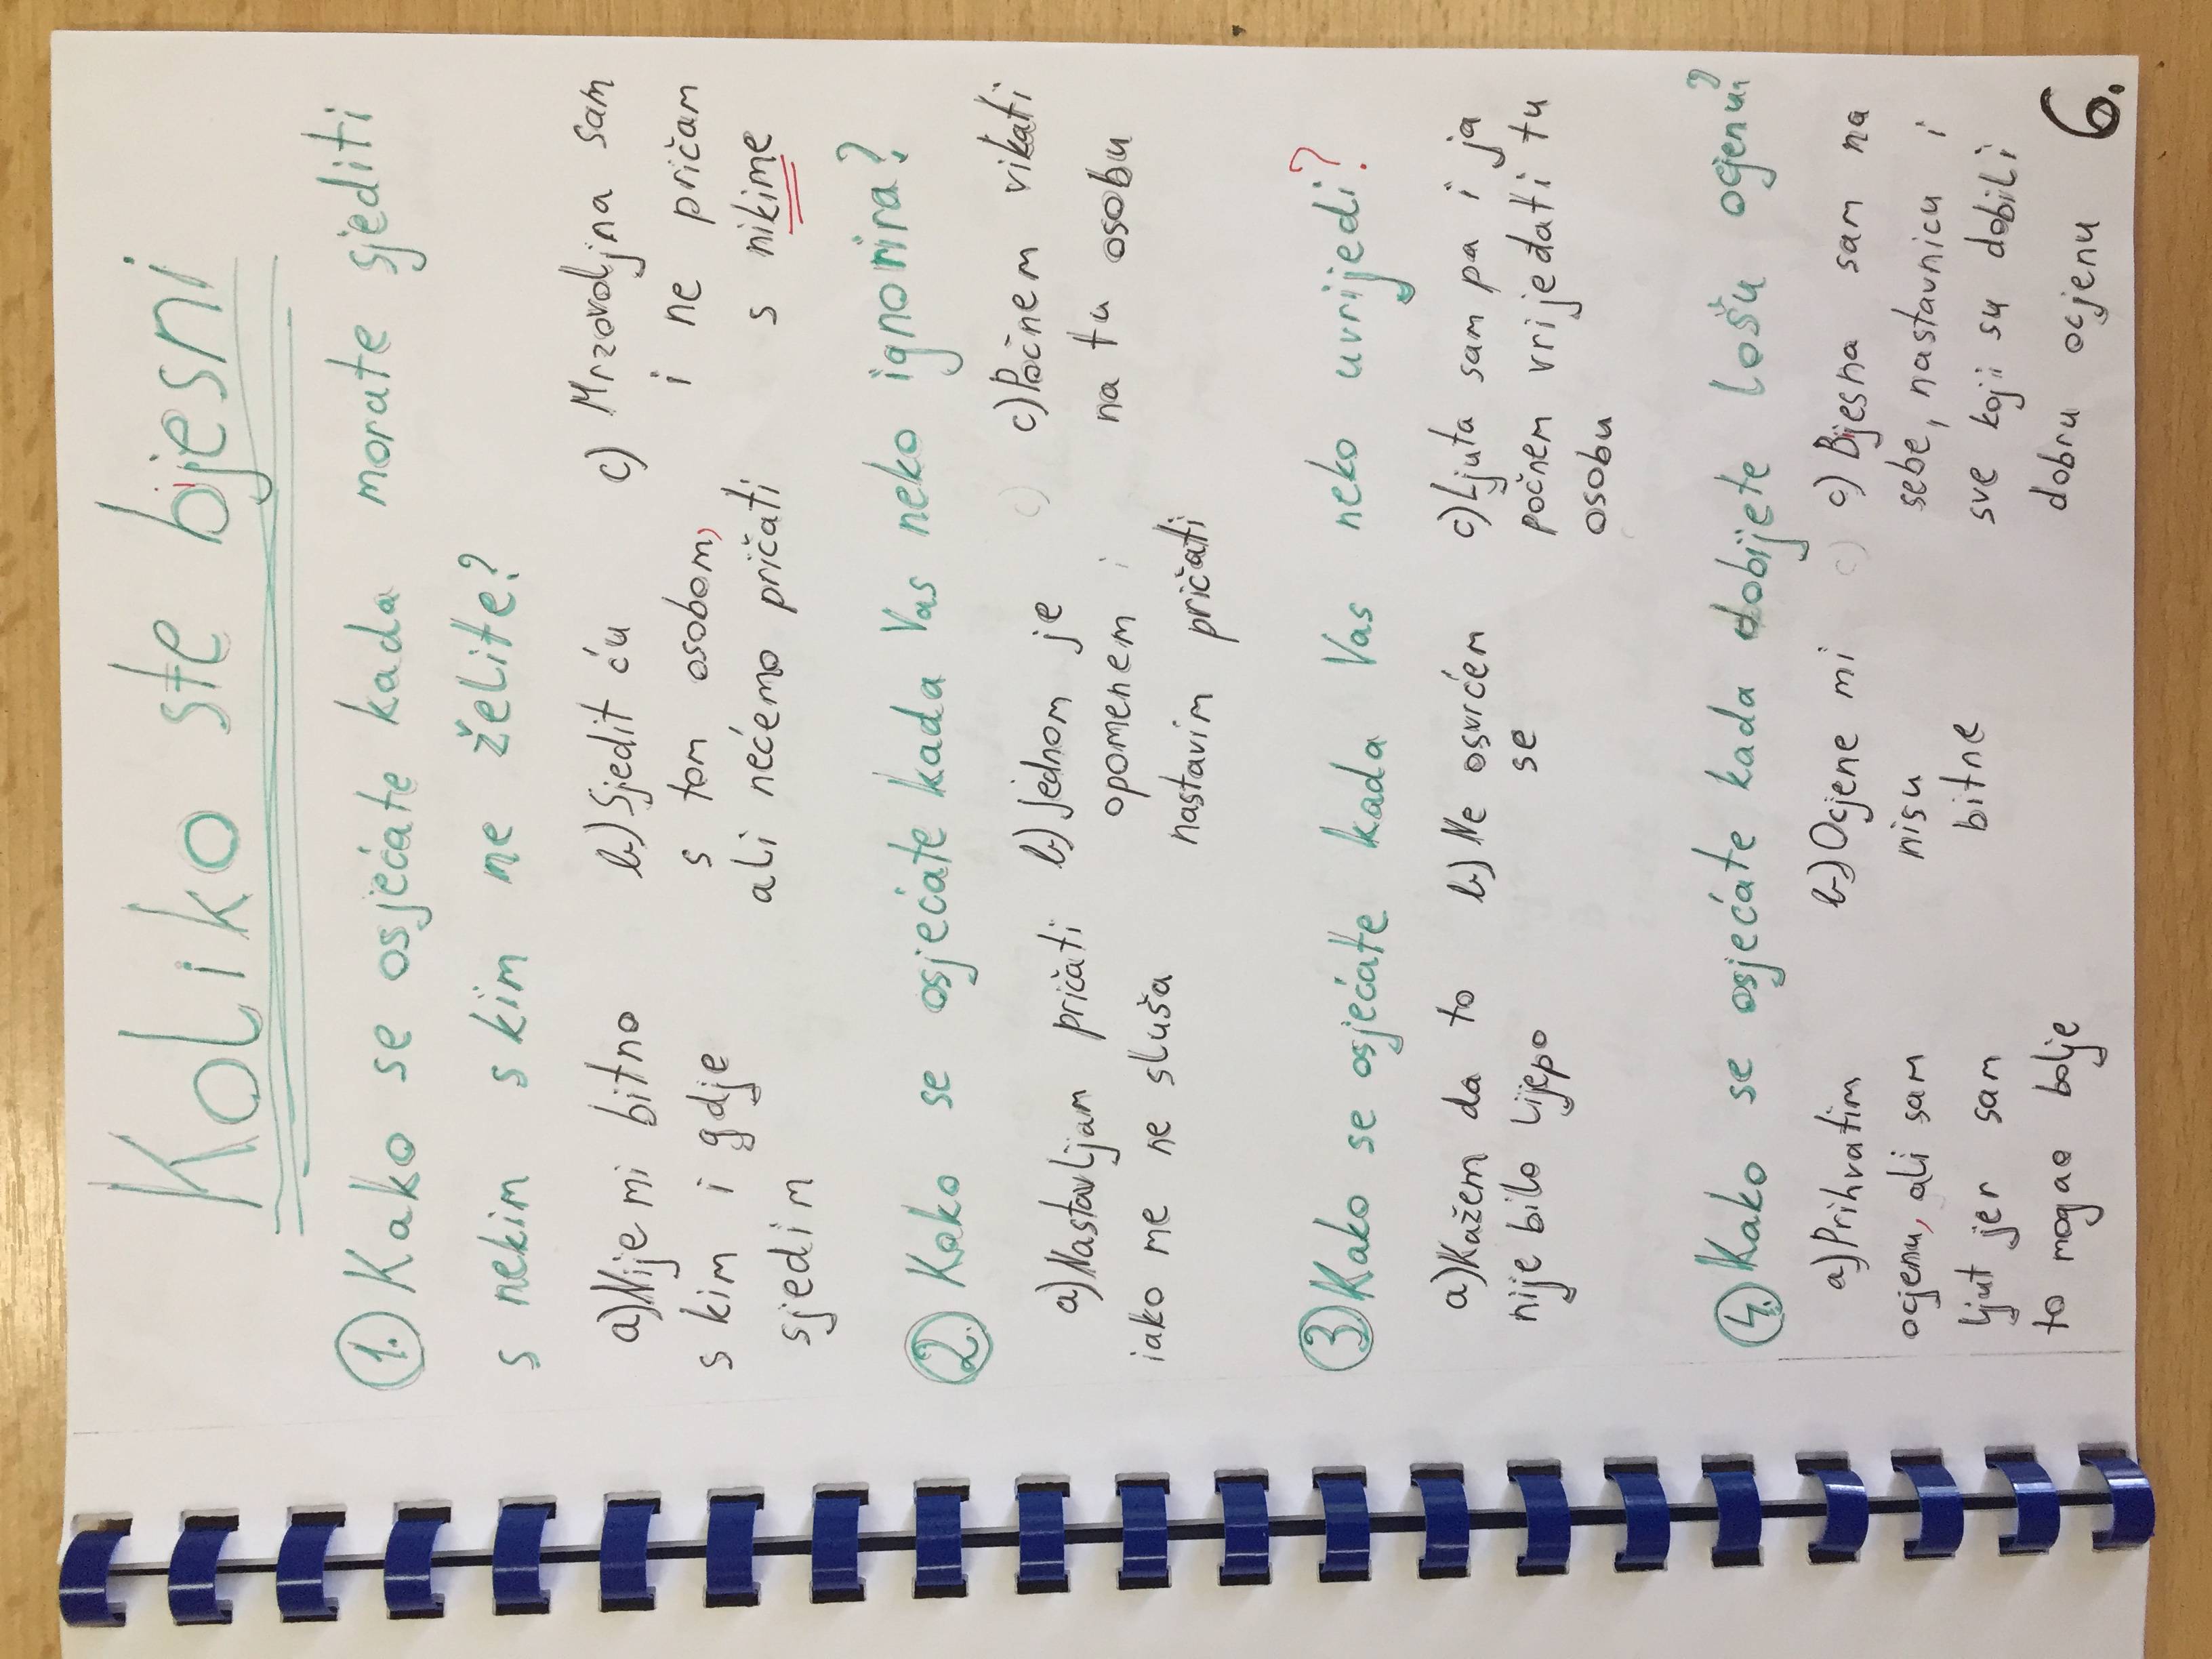 Koliko ste bjesni
1. Kako se osjećate kada morate sjediti
s nekim s kim ne želite?
a) Nije mi bitno
s kim i gdje
sjedim
b) Sjedit ću
s tom osobom,
ali nećemo pričati
c) Mrzovoljna sam
i ne pričam
s nikime
2. Kako se osjećate kada Vas neko ignorira?
a) Nastavljam pričati
iako me ne sluša
b) Jednom je
opomenem i
nastavim pričati
c) Počnem vikati
na tu osobu
3 Kako se osjećate kada Vas neko uvrijedi?
a) Kažem da to
nije bilo lijepo
b) Ne osvrćem
se
c) Ljuta sam pa i ja
počnem vrijeđati tu
osobu
4. Kako se osjećate kada dobijete lošu ocjenu?
a) Prihvatim
ocjenu, ali sam
ljut jer sam
to mogao bolje
b) Ocjene mi
nisu
bitne
c) Bjesna sam na
sebe, nastavnicu i
sve koji su dobili
dobru ocjenu
6.